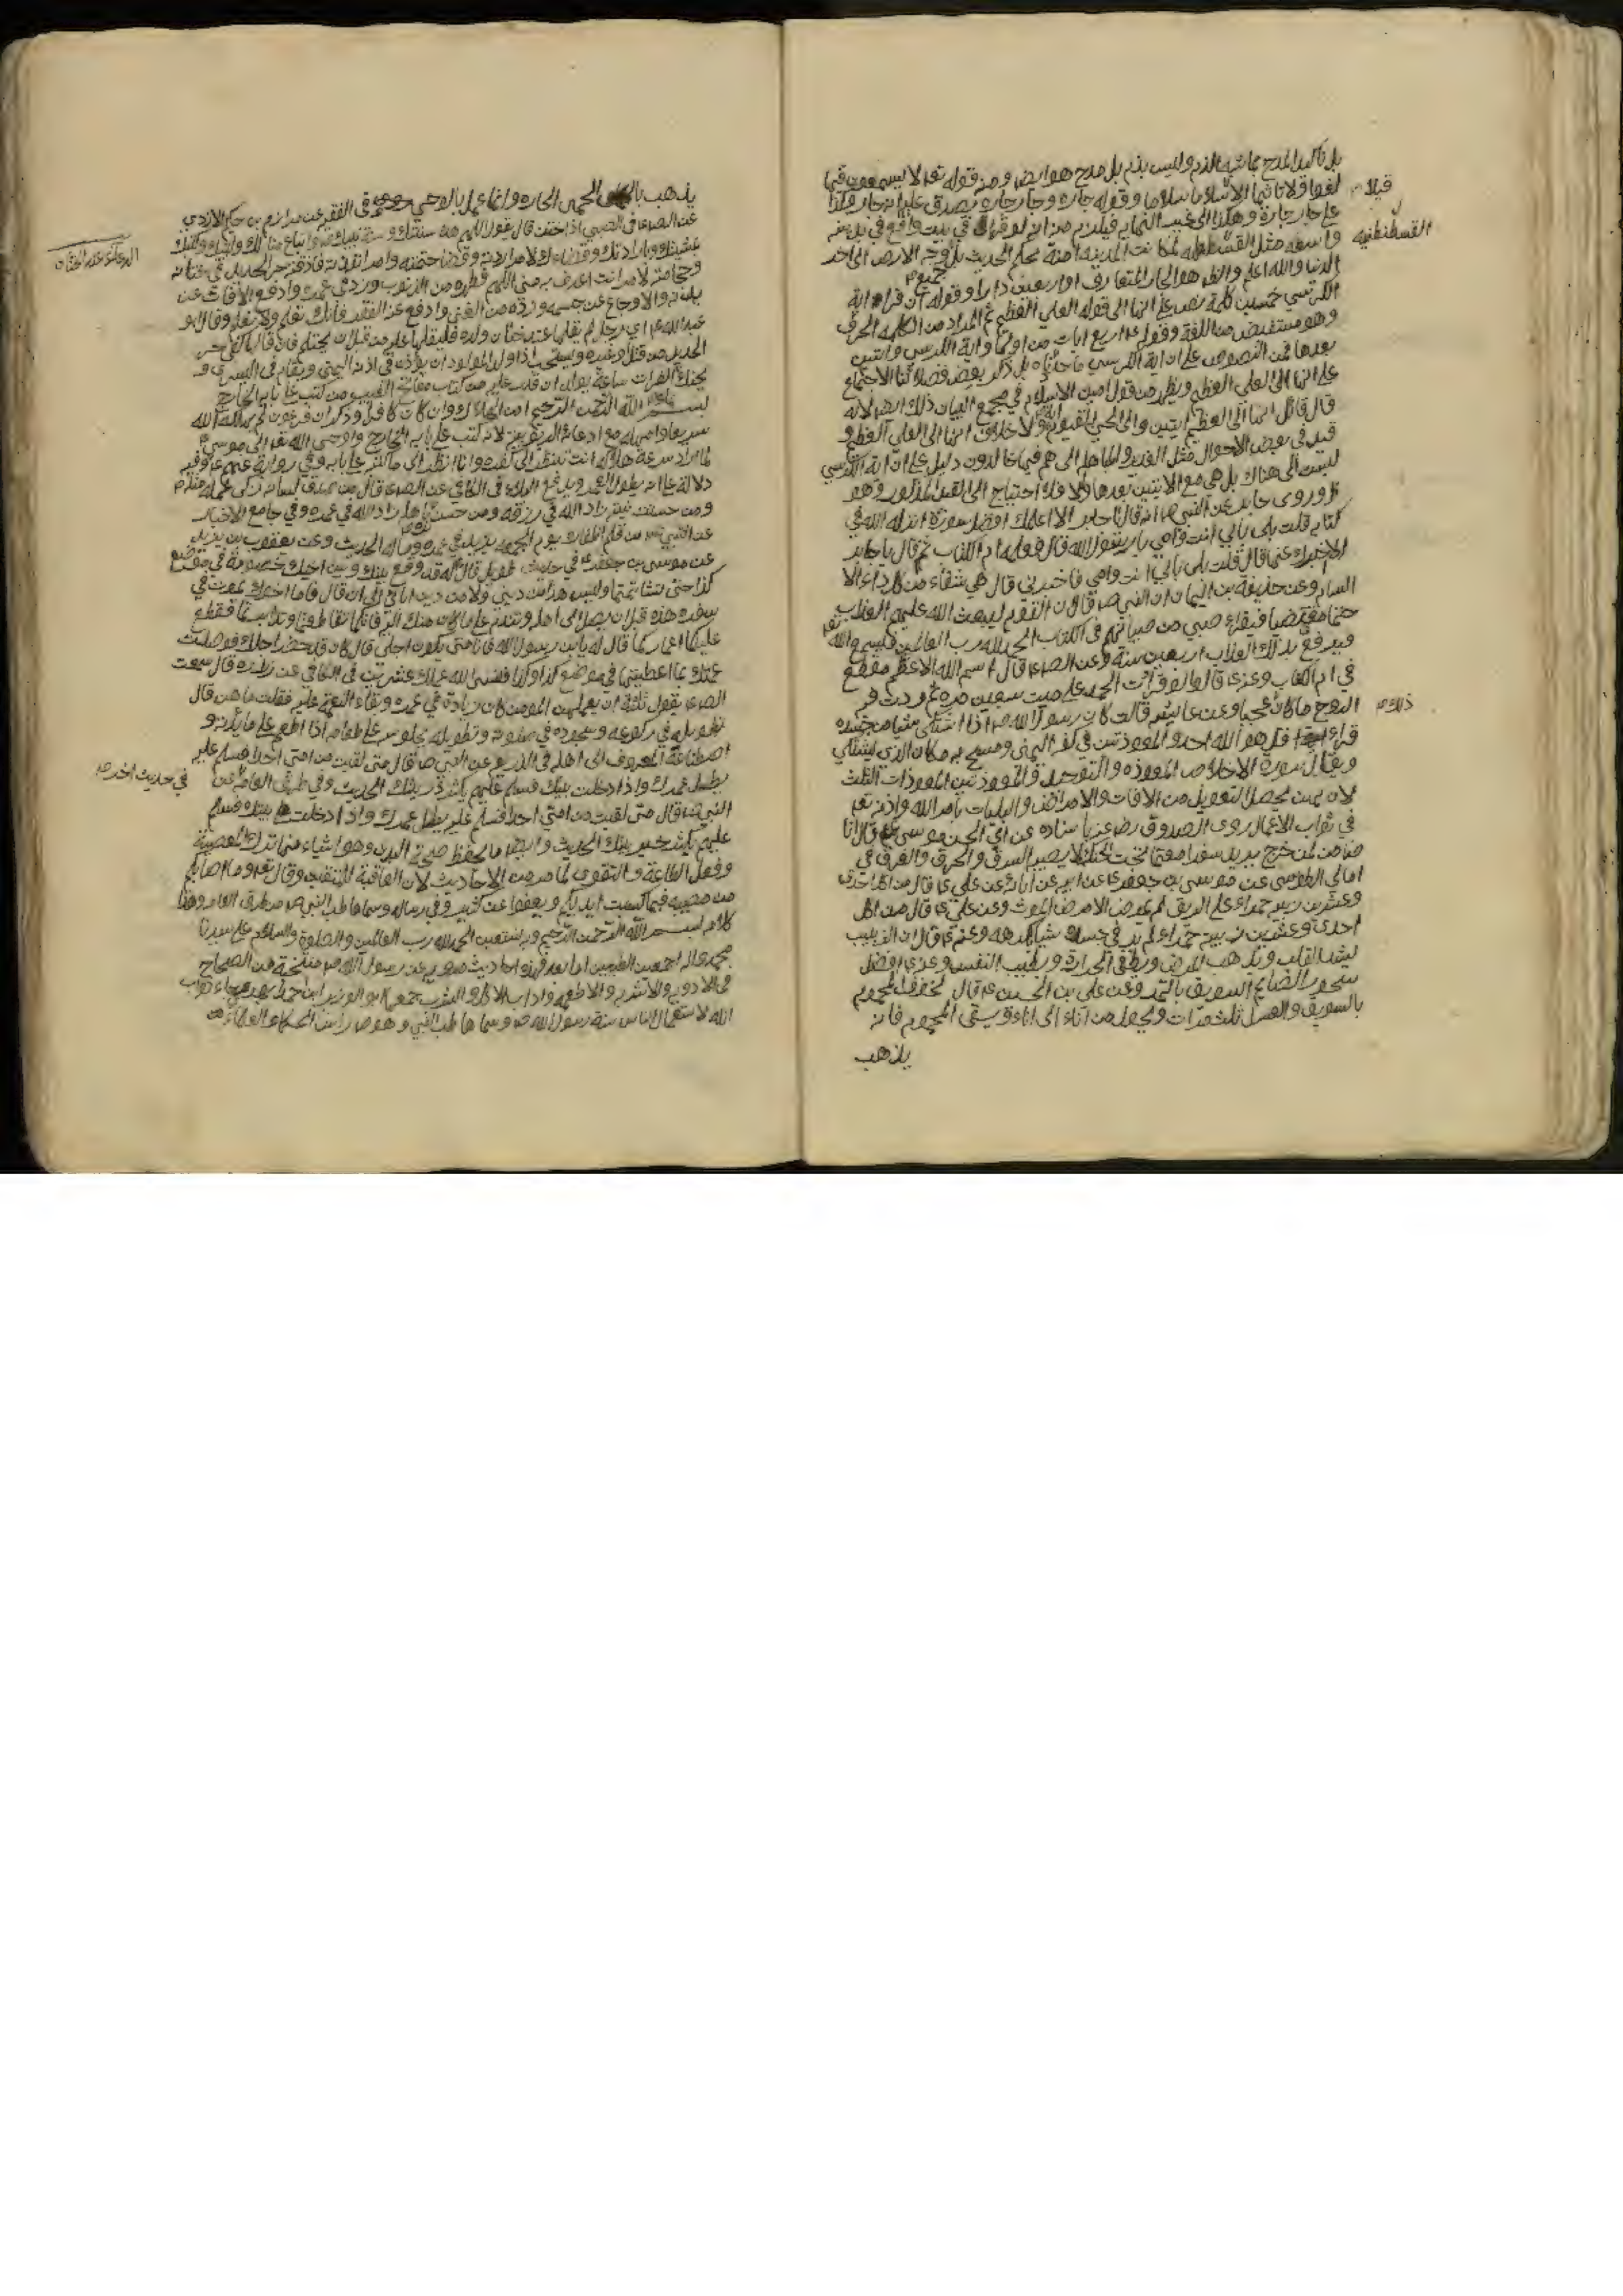 بل تاكيد المدح بما يشبه الذم وليس بذم بل مدح هو ايض ومنه قوله تعـ لا يسمعون فيها
لغوا ولا تاثيما الا سلاما سلاما وقوله جاره وجار جاره يصدق عليه انه جار وكذا
قبلا
على جار جاره وهكذا الى غير النهايه فيلزم من انه لو قرأ في بيت واقع في مدينه
القسطنطنيه
واسعه مثل القسطنطنيه لكانت المدينه امنة بحكم الحديث بل وجه الارض الى اخر
الدنيا والله اعلم والظ هو الجار المتعارف او اربعين دارا وقوله ان قراء اية
الكرسي خمسين كلمة نص على انها الى قوله العلي العظيم ثم المراد من الكلمه الحرف
وهو مستفيض من اللغة وقوله اربع ايات من اولها واية الكرسي وايتين
بعدها فمن النصوص على ان اية الكرسي ما حددناه بل ذكر بعض فضلائنا الاجماع
على انها الى العلي العظيم ويظهر من قول امين الاسلام في مجمع البيان ذلك ايض لانه
قال قائل انها الى العظيم ايتين والى الحي القيوم اية ولا خلاف انها الى العلي العظيم و
قيد في بعض الاحوال مثل الغدير والمباهلة الى هم فيها خالدون دليل على ان اية الكرسي
ليست الى هناك بل هي مع الايتين بعدها والا فلا احتياج الى القيد المذكور وهو
ظ وروى جابر عن النبي ص انه قال يا جابر الا اعلمك افضل سورة انزله الله في
كتابه قلت بلى بابي انت وامي يا رسول الله قال فعلمه ام الكتاب ثم قال يا جابر
الا اخبرك عنها قال قلت بلى بابي انت وامي فاخبرني قال هي شفاء من كل داء الا
السام وعن حذيفة بن اليمان ان النبي ص قال ان القوم ليبعث الله عليهم العذاب
حتما مقضيا فيقراء صبي من صبيانهم في الكتاب الحمد لله رب العالمين فيسمع الله تعـ
فيرفع بذلك العذاب اربعين سنة وعن الصـ ع قال اسم الله الاعظم مقطع
في ام الكتاب وعنه ع قال لو قرات الحمد على ميت سبعين مره ثم ردت فيه
الروح ما كان عجبا وعن عايشه قالت كان رسول الله ص اذا اشتكى شيئا من جسده
ذلك
قراء قل هو الله احد والمعوذتين في كفه اليمنى ومسح به مكان الذي يشتكي
ويقال سورة الاخلاص المعوذه والتوحيد والمعوذتين المعوذات الثلث
لان بهن يحصل التعويذ من الافات والامراض والبليات بامر الله واذنه تعـ
في ثواب الاعمال روى الصدوق رضـ عنه باسناده عن ابي الحسن موسى ع قال انا
ضامن لمن خرج يريد سفرا معتما تحت الحنك لا يصيبه السرق والحرق والغرق في
امالي الطوسي عن موسى بن جعفر ع عن ابيه عن ابائه عن علي ع قال من اكل احدى
وعشرين زبيبه حمراء على الريق لم يمرض الا مرض الموت وعن علي ع قال من اكل
احدى وعشرين زبيبه حمراء لم ير في جسده شيئا يكرهه وعنه ع قال ان الزبيب
يشد القلب ويذهب المرض ويطفي الحرارة ويطيب النفس وعنه ع افضل
سحور الصائم السويق بالتمر وعن علي بن الحسين ع قال يخفف المحموم
بالسويق والعسل ثلث مرات ويحول من اناء الى اناء ويسقى المحموم فانه
يذهب
يذهب بالحمى الحاره وانما عمل بالوحي في الفقيه عن مرازم بن حكيم الازدي
عن الصـ ع في الصبي اذا ختن قال يقول اللهم هذه سنتك وسنة نبيك ص واتباع منا لك ولنبيك
الدعاء عند الختان
بمشيتك وبارادتك وقضائك لامر اردته وقضاء حتمته وامر انفذته فاذقته حر الحديد في ختانه
وحجامته لامر انت اعرف به مني اللهم فطهره من الذنوب وزد في عمره وادفع الافات عن
بدنه والاوجاع عن جسمه وزده من الغنى وادفع عنه الفقر فانك تعلم ولا نعلم وقال ابو
عبد الله ع اي رجل لم يقلها عند ختان ولده فليقلها عليه من قبل ان يحتلم فان قالها كفي حر
الحديد من قتل وغيره ويستحب اذا ولد المولود ان يؤذن في اذنه اليمنى ويقام في اليسرى و
يحنك بماء الفرات ساعة يولد ان قدر عليه من كتاب مفاتيح الغيب من كتب على بابه الخارج
بسم الله الرحمن الرحيم امن الهلاك وان كان كافرا وذكر ان فرعون لم يهلكه الله
سريعا وامهله مع ادعائه الربوبية لانه كتب على بابه الخارج واوحى الله تعـ الى موسى ع
لما اراد سرعة هلاكه انت تنظر الى كفره وانا انظر الى ما كتبه على بابه وفي رواية عنهم ع وفيه
دلالة على انه يطول العمر ويدفع البلاء في الكافي عن الصـ ع قال من صدق لسانه زكى عمله
ومن حسنت نيته زاد الله في رزقه ومن حسن بره باهله زاد الله في عمره وفي جامع الاخبار
عن النبي ص من قلم اظفاره يوم الجمعه يزيد في عمره وماله الحديث وعن يعقوب بن يزيد
عن موسى بن جعفر ع في حديث طويل قال له قد وقع بينك وبين اخيك خصومة في موضع
كذا حتى تشاتمتما وليس هذا من ديني ولا من دين ابائي الى ان قال فاما اخوك يموت في
سفره هذه قبل ان يصل الى اهله وتندم على ما كان منك اليه فانكما تقاطعتما وتدابرتما فقطع
عليكما اعماركما قال له يا بن رسول الله فانا متى يكون اجلي قال كان قد حضر اجلك فوصلت
عمتك بما اعطيتها في موضع كذا وكذا فنسى الله عمرك عشرين في الكافي عن زراره قال سمعت
الصـ ع يقول ثلثة ان يعملهن المومن كان زيادة في عمره وبقاء النعمة عليه فقلت ما هن قال
تطويله في ركوعه وسجوده في صلوته وتطويله بجلوسه على طعامه اذا اطعم على مائدته و
اصطناعه المعروف الى اهله في الذريعه عن النبي ص قال متى لقيت من امتي احدا فسلم عليه
يطل عمرك واذا دخلت بيتك فسلم عليهم يكثر خير بيتك الحديث وفي طريق العامة عن
في حديث اخر
النبي ص قال متى لقيت من امتي احدا فسلم عليه يطل عمرك واذا دخلت بيتك فسلم
عليهم يكثر خير بيتك الحديث وايضا ما يحفظ صحة البدن وهو اشياء منها ترك المعصية
وفعل الطاعة والتقوى لما مر من الاحاديث لان العاقبة للمتقين وقال تعـ وما اصابكم
من مصيبه فبما كسبت ايديكم ويعفوا عن كثير وفي رساله وسماها طب النبي ص من طرق العامه وهذا
كلامه بسم الله الرحمن الرحيم وبه نستعين الحمد لله رب العالمين والصلوة والسلام على سيدنا
محمد واله اجمعين الطيبين اما بعد فهذه احاديث مرويه عن رسول الله ص منتخبة من الصحاح
في الادويه والاشربه والاطعمه واداب الاكل والشرب جمعها ابو الوزير ابن احمد رجاء ثواب
الله لاستعمال الناس سنة رسول الله ص وسماها طب النبي وهو ص راس الحكماء العلماء